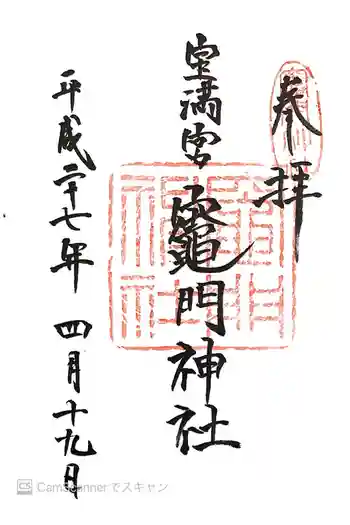 奉拝
宝満宮
竈門神社
平成二十七年 四月十九日
CS CamScannerでスキャン